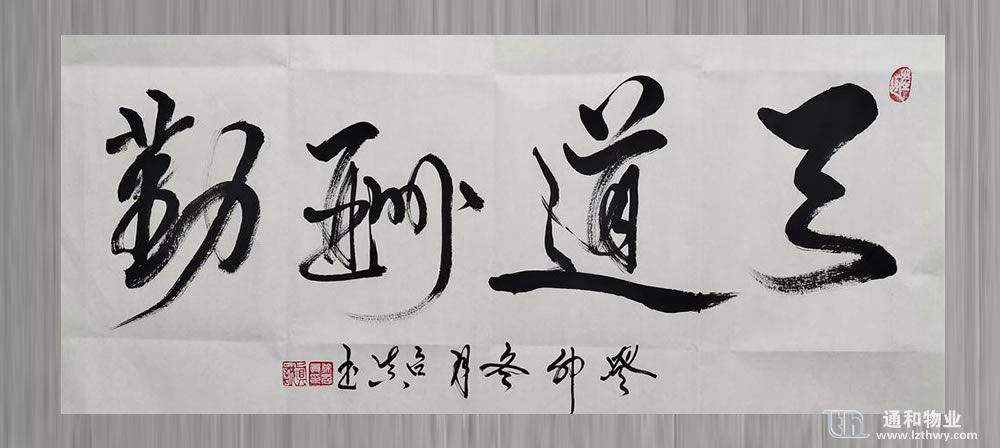 天道酬勤
癸卯冬月
通和物业
www.lzthwy.com